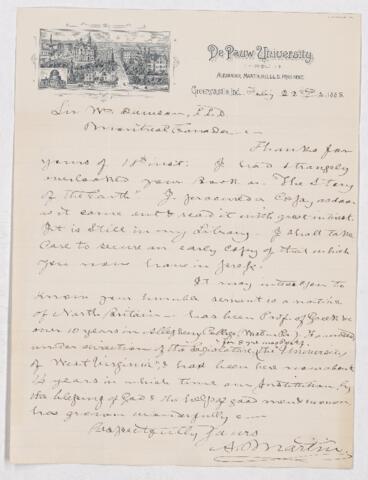 De Pauw University
Alexander Martin, D.D. L.L.D. President.
Greencastle, Ind. July 22nd 1888
Sir Wm Dawson, L.L.D.
Montreal Canada
Thanks for
yours of 18th inst. I had strangely
overlooked your Book on "The Story
of the Earth" I procured a Copy, as soon
as it came out & read it with great interest.
It is still in my Library. I shall take
Care to secure an early Copy of that which
you now have in press.
It may interest you to
know your humble servant is a native
of North Britain - has been Prof. of Greek &c
over 10 years in Allegheny College, (Meadville Pa)
under direction of its Legislature the "University
of West Virginia" & had been here now about
13 years in which time our Institution, by
the blessing of God & the help of good men & women
has grown wonderfully
Respectfully Yours
A. Martin